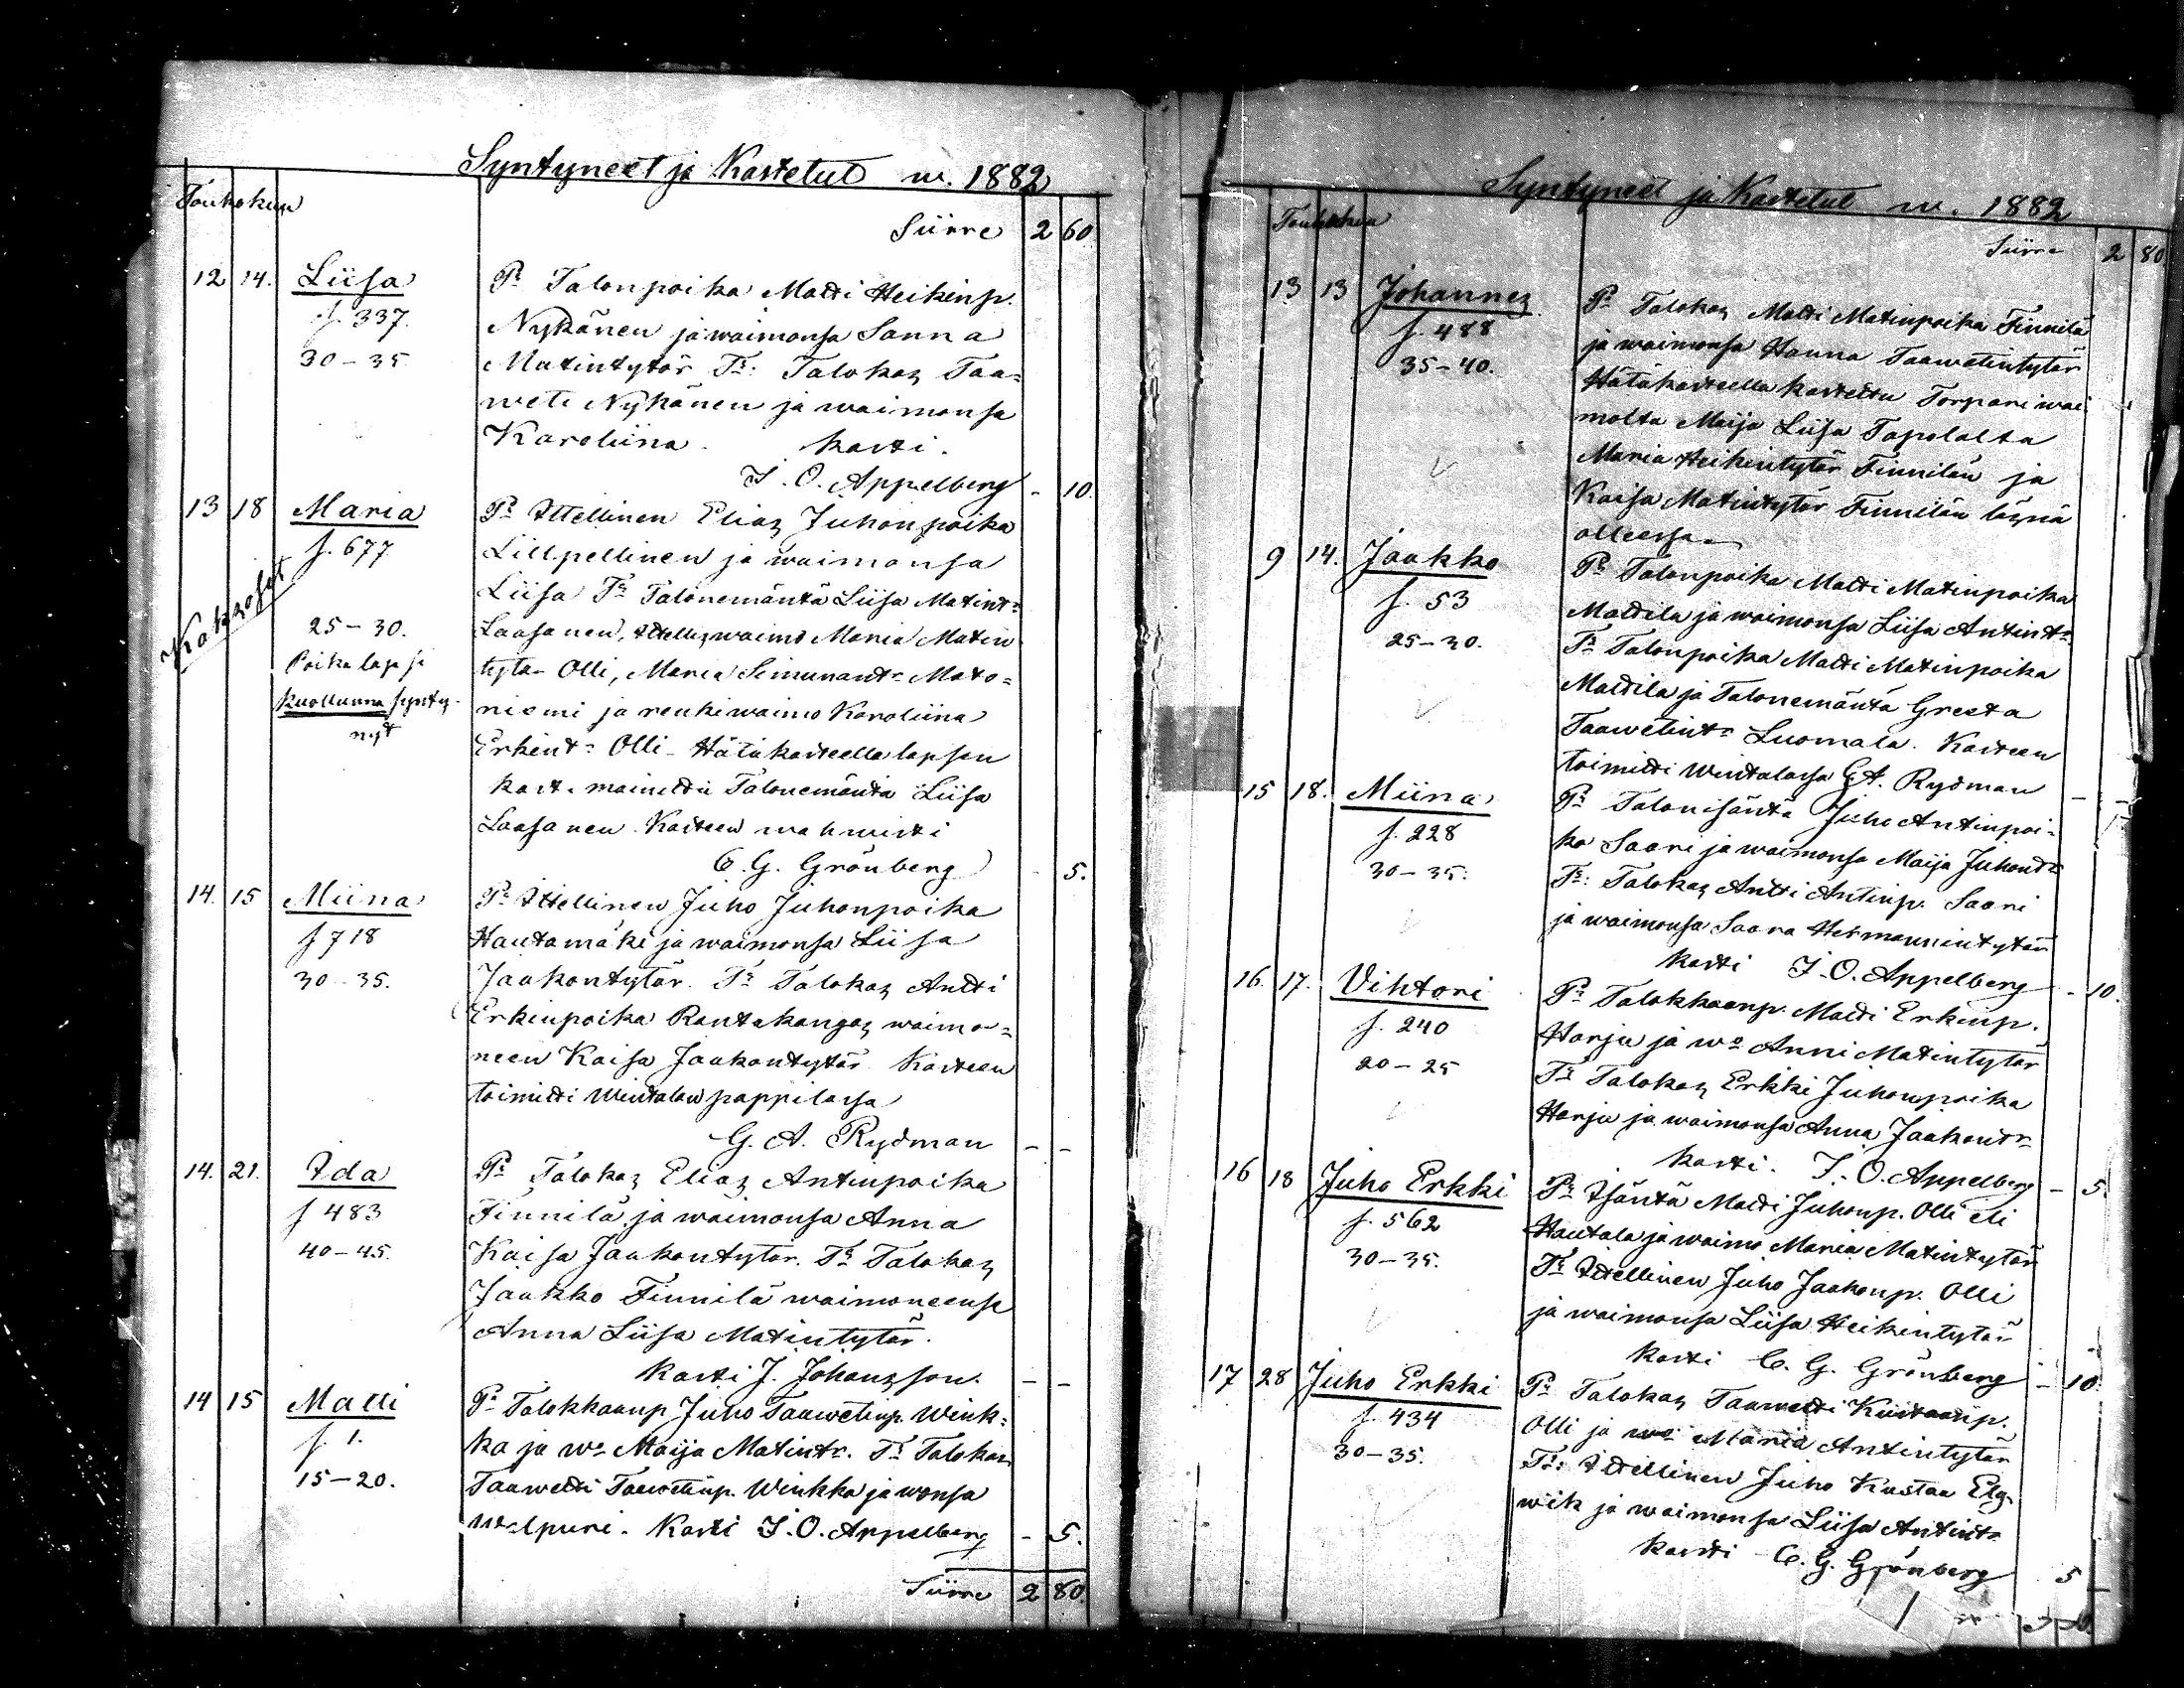 Syntyneet ja Kastetut w. 1882
Toukokuu
Siirre 2 60
12 14. Liisa Pr Talonpoika Matti Heikinp.
f. 337. Nykänen ja waimonsa Sanna
30-35 Matintytär Tr: Talokas Taa=
weti Nykänen ja waimonsa
Karoliina. Kasti.
I. O. Appelberg - 10.
13 18 Maria Pr Itellinen Elias Juhonpoika
f. 677 Lillpellinen ja waimonsa
Kaksoset
Liisa Tr Talonemäntä Liisa Matint=
25-30. Laasanen, Itellis waimo Maria Matin
Poika lapsi tytar Olli, Maria Simunantr Mato=
kuollunna synty- niemi ja renkiwaimo Karoliina
nyt
Erkintr Olli - Hätäkasteella lapsen
kast. mainittu Talonemäntä Liisa
Laasanen. Kasteen wahwisti
C. G. Grönberg - 5.
14. 15 Miina Pr Itellinen Juho Juhonpoika
f 718 Hautamäki ja waimonsa Liisa
30-35. Jaakontytär. Tr Talokas Antti
Erkinpoika Rantakangas waimo=
neen Kaisa Jaakontytär Kasteen
toimitti Wintalan pappilassa
G. A. Rydman - -
14. 21. Ida Pr Talokas Elias Antinpoika
f 483 Finnilä ja waimonsa Anna
40-45. Kaisa Jaakontytär. Tr Talokas
Jaakko Finnilä waimoneensa
Anna Liisa Matintytär.
Kasti J. Johansson. - -
14 15 Matti Pr Talokkaanp Juho Taawetinp. Wink=
f. 1. ka ja wo Maija Matintr. Tr Talokas
15-20. Taawetti Taawetinp. Winkka ja wonsa
Walpuri. Kasti I. O. Appelberg - 5.
Siirre 2 80.
Syntyneet ja Kastetut w. 1882
Toukokuu
Siirre 2 80
13 13 Johannes Pr Talokas Matti Matinpoika Finnilä
f. 488 ja waimonsa Hanna Taawetintytär
35-40. Hätäkasteella kastettu Torpari wai
molta Maija Liisa Tapolalta
Maria Heikintytär Finnilän ja
Kaisa Matintytär Finnilän läsnä
ollessa
9 14. Jaakko Pr Talonpoika Matti Matinpoika
f. 53 Mattila ja waimonsa Liisa Antintr
25-30. Tr Talonpoika Matti Matinpoika
Mattila ja Talonemäntä Greeta
Taawetintr Luomala. Kasteen
toimitti Wintalassa G.A. Rydman - -
15 18. Miina Pr Talonisäntä Juho Antinpoi=
f. 228 ka Saari ja waimonsa Maija Juhontr
30-35. Tr: Talokas Antti Antinp. Saari
ja waimonsa Saara Hermannintytär
kasti I. O. Appelberg - 10.
16. 17. Vihtori Pr Talokkaanp. Matti Erkinp.
f. 240 Harju ja wo Anni Matintytär
20-25 Tr Talokas Erkki Juhonpoika
Harju ja waimonsa Anna Jaakontr
kasti. I. O. Appelberg - 5
16 18 Juho Erkki Pr Isäntä Matti Juhonp. Olli eli
f. 562 Hautala ja waimo Maria Matintytär
30-35. Tr Itellinen Juho Jaakonp. Olli
ja waimonsa Liisa Heikintytär
kasti C. G. Grönberg - 10.
17 28 Juho Erkki Pr Talokas Taawetti Kustaanp.
f. 434 Olli ja wo Maria Antintytär
30-35. Tr: Itellinen Juho Kustaa Elg-
wik ja waimonsa Liisa Antintr
kasti C. G. Grönberg 5